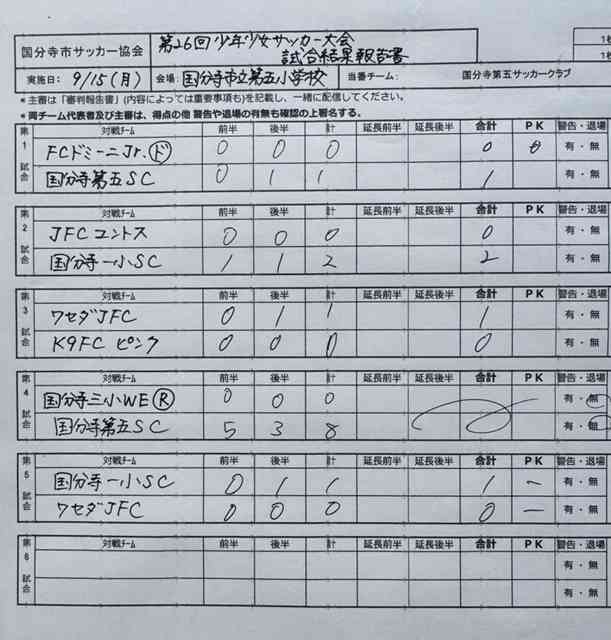 国分寺市サッカー協会 第26回少年少女サッカー大会
試合結果報告書
実施日： 9/15(月) 会場： 国分寺市立第五小学校 当番チーム： 国分寺第五サッカークラブ
＊主審は「審判報告書」(内容によっては重要事項も)を記載し、一緒に配信してください。
＊両チーム代表者及び主審は、得点の他 警告や退場の有無も確認の上署名する。
第1試合 対戦チーム 前半 後半 計 延長前半 延長後半 合計 PK 警告・退場
FCドミーニJr.ド 0 0 0 0 0 有・無
国分寺第五SC 0 1 1 1 有・無
第2試合 対戦チーム 前半 後半 計 延長前半 延長後半 合計 PK 警告・退場
JFCコントス 0 0 0 0 有・無
国分寺一小SC 1 1 2 2 有・無
第3試合 対戦チーム 前半 後半 計 延長前半 延長後半 合計 PK 警告・退場
ワセダJFC 0 1 1 1 有・無
K9FC ピンク 0 0 0 0 有・無
第4試合 対戦チーム 前半 後半 計 延長前半 延長後半 合計 PK 警告・退場
国分寺三小WE Ⓡ 0 0 0 有・無
国分寺第五SC 5 3 8 有・無
第5試合 対戦チーム 前半 後半 計 延長前半 延長後半 合計 PK 警告・退場
国分寺一小SC 0 1 1 1 ー 有・無
ワセダJFC 0 0 0 0 ー 有・無
第6試合 対戦チーム 前半 後半 計 延長前半 延長後半 合計 PK 警告・退場
有・無
有・無